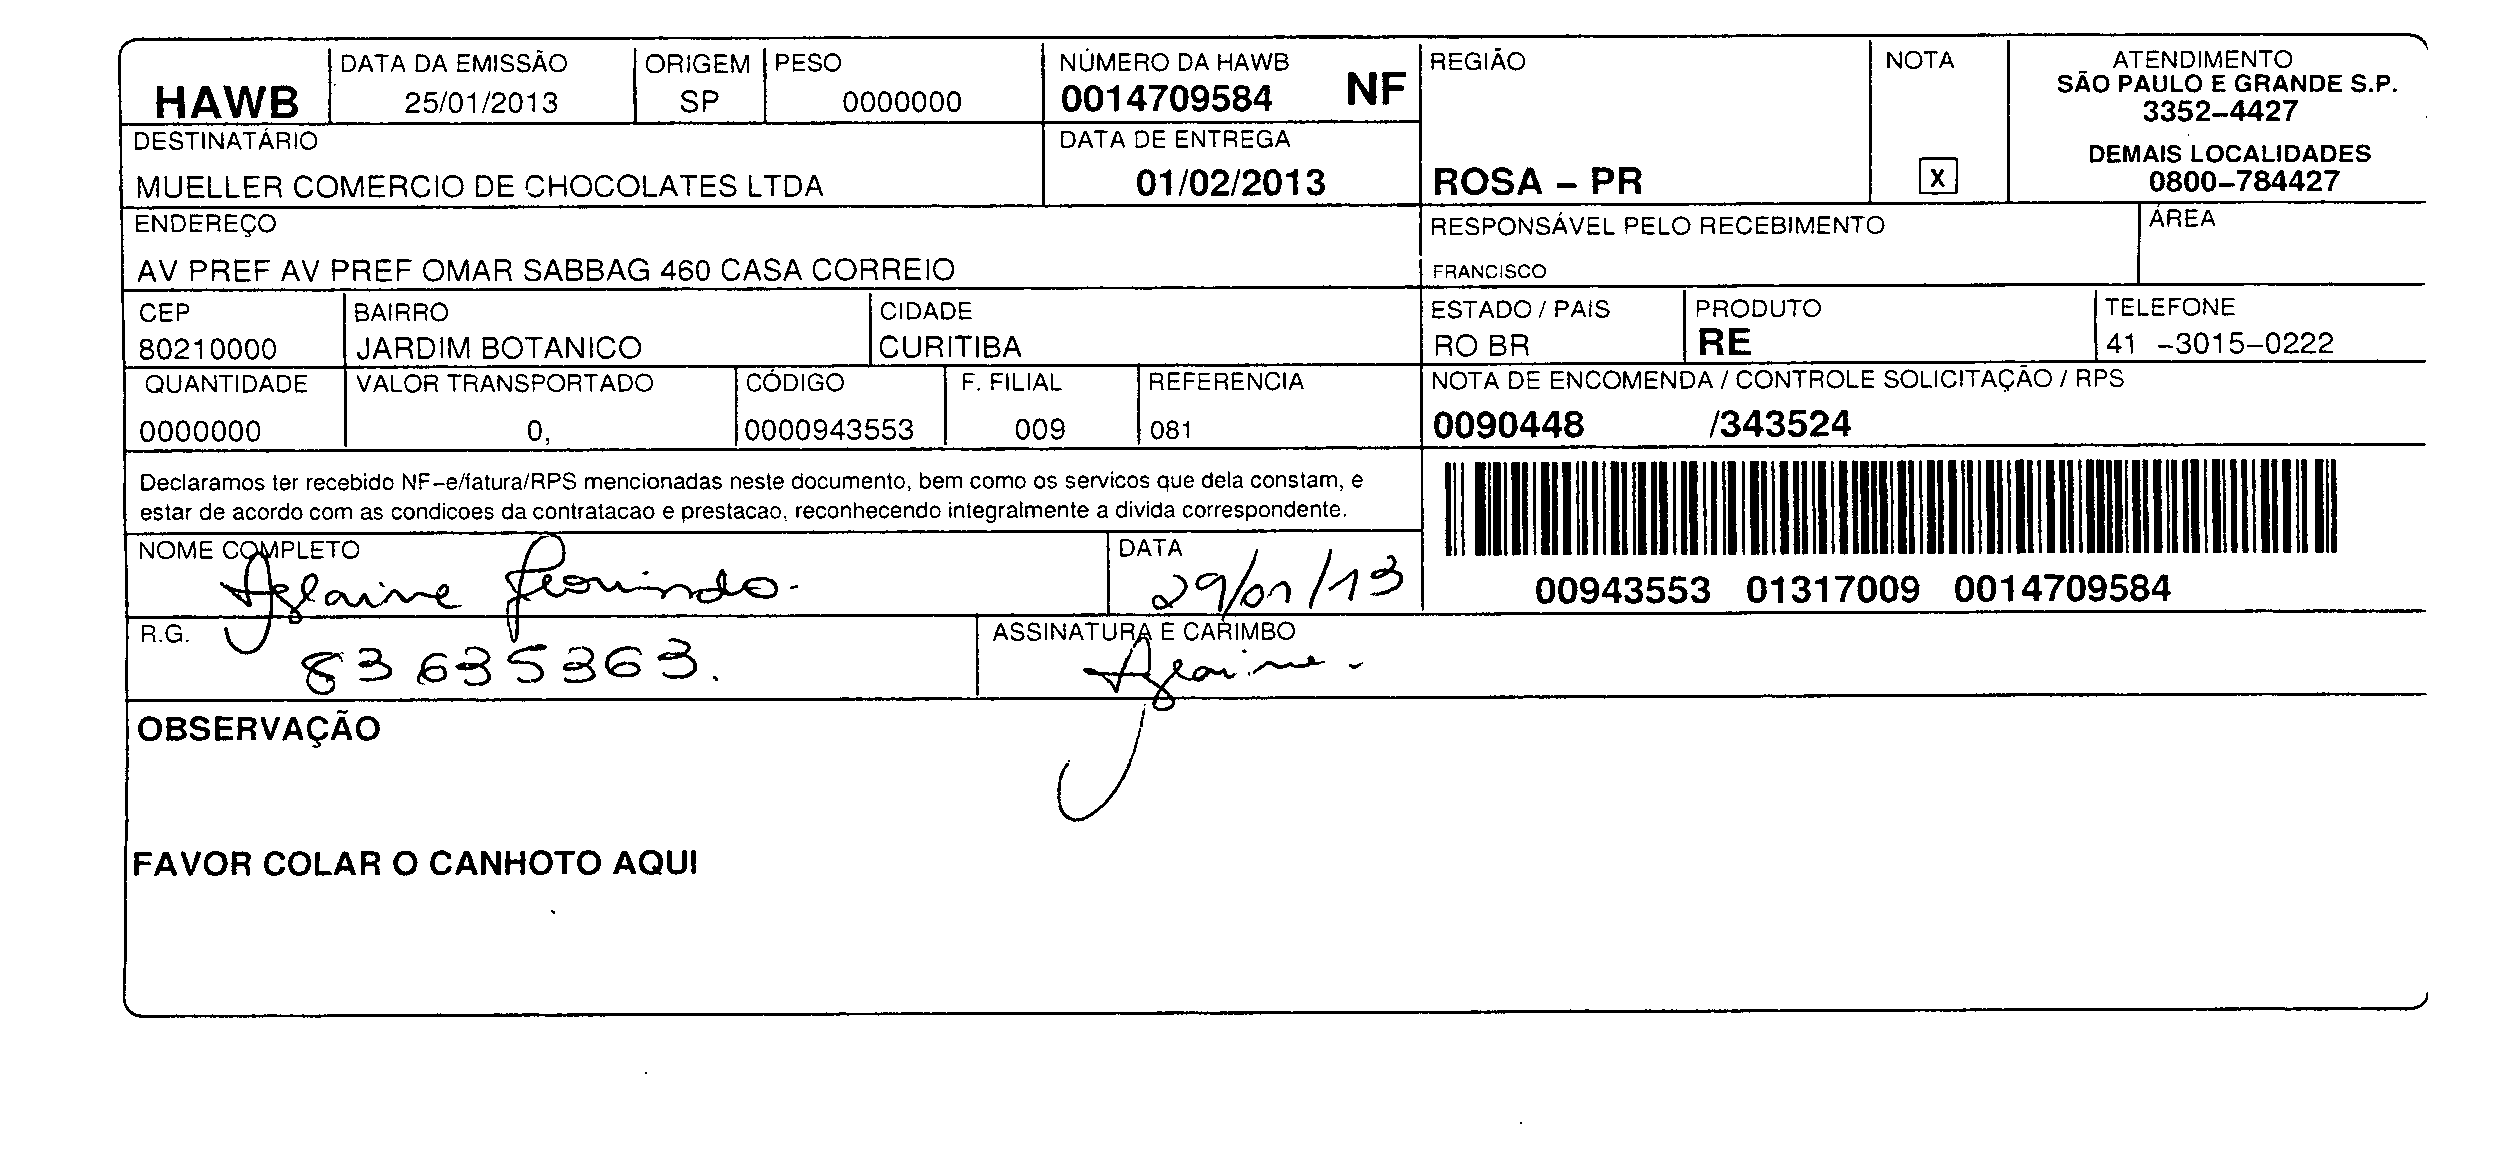 HAWB
DATA DA EMISSÃO
25/01/2013
ORIGEM
SP
PESO
0000000
NÚMERO DA HAWB
0014709584 NF
REGIÃO
ROSA – PR
NOTA
X
ATENDIMENTO
SÃO PAULO E GRANDE S.P.
3352–4427
DEMAIS LOCALIDADES
0800–784427
DESTINATÁRIO
MUELLER COMERCIO DE CHOCOLATES LTDA
DATA DE ENTREGA
01/02/2013
ENDEREÇO
AV PREF AV PREF OMAR SABBAG 460 CASA CORREIO
RESPONSÁVEL PELO RECEBIMENTO
FRANCISCO
ÁREA
CEP
80210000
BAIRRO
JARDIM BOTANICO
CIDADE
CURITIBA
ESTADO / PAÍS
RO BR
PRODUTO
RE
TELEFONE
41 –3015–0222
QUANTIDADE
0000000
VALOR TRANSPORTADO
0,
CÓDIGO
0000943553
F. FILIAL
009
REFERENCIA
081
NOTA DE ENCOMENDA / CONTROLE SOLICITAÇÃO / RPS
0090448 /343524
Declaramos ter recebido NF–e/fatura/RPS mencionadas neste documento, bem como os servicos que dela constam, e
estar de acordo com as condicoes da contratacao e prestacao, reconhecendo integralmente a divida correspondente.
00943553 01317009 0014709584
NOME COMPLETO
DATA
29/01/13
R.G.
83635363.
ASSINATURA E CARIMBO
OBSERVAÇÃO
FAVOR COLAR O CANHOTO AQUI